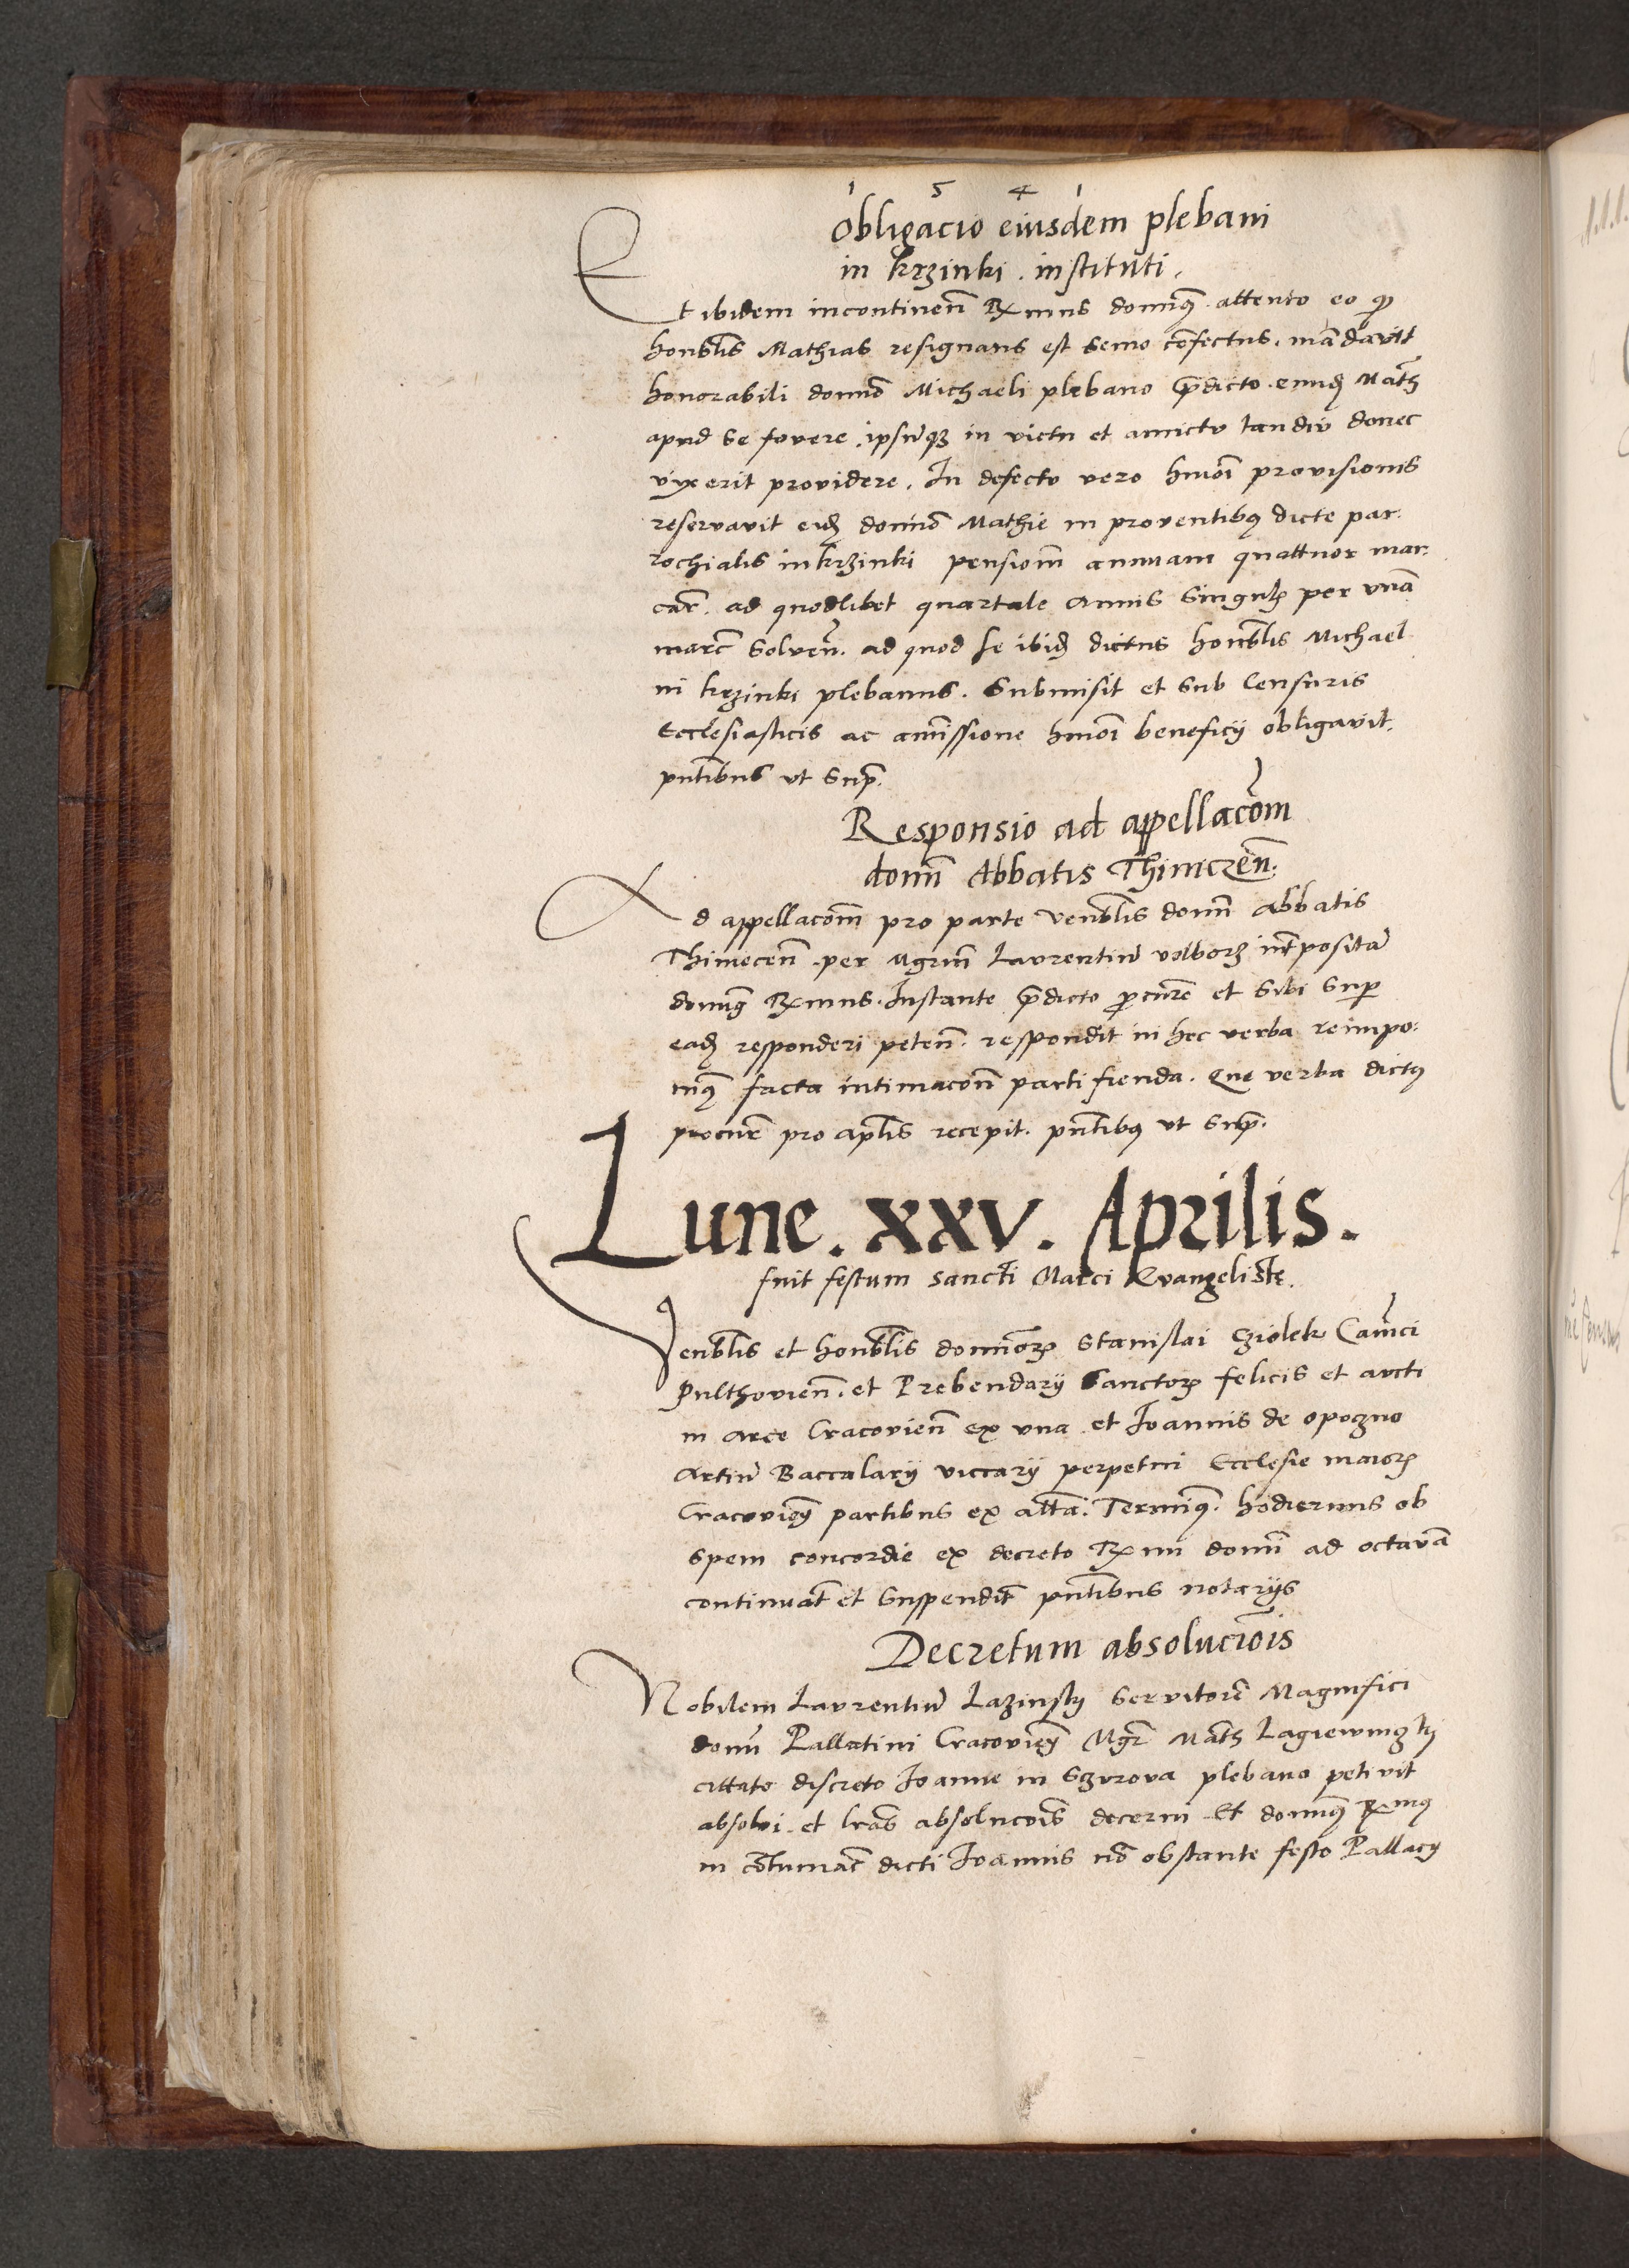 1 5 4 1
Obligacio eiusdem plebani
in krzinki . instituti.
Et ibidem incontinen̄ Rx̄mus domīq9 attento eo q̄
honoblīs Mathias resignans est senio cōfectus . māndavit
honorabili domīo Michaeli plebano p̄dicto . eundē Math
apud se fovere . ipsūq3 in victu et amictu tandiu donec
vixerit providere . In defectu vero hmōi provisionis
reservavit eidē domīo Mathie in proventib9 dicte par:
rochialis in krzinki pensionē annuam quattuor mar:
car̄ . ad quodlibet quartale annis singul̄ per vnā
marc̄ solven̄ . ad quod se ibidē dictus honoblīs Michael
in krzinki plebanus . submisit et sub Censuris
Ecclesiasticis ac amissione hmōi beneficij obligavit.
pn̄tibus vt sup̄
Responsio ad appellacōm
domī Abbatis Thinczen̄.
Ad appellacōm pro parte venblīs domī Abbatis
Thinecen̄ . per Mgrm̄ Laurentiū volborz int̄positā
domīq9 Rx̄mus . Instante p̄dicto p̄cur̄e et sibi sup̄
eadē responderi peten̄ . respondit in hec verba reimpo:
nim9 facta intimacōn̄ parti fienda . Que verba dict9
procur̄ pro aplīs recepit . pn̄tib9 vt sup̄ .
Lune . XXV . Aprilis .
fuit festum sancti Marci Evangeliste .
Venblīs et honoblīs domīorz Stanislai Cziolek Canīci
Pulthovien̄ . et Prebendarij Sanctorz felicis et aucti
in arce Cracovien̄ ex vna . et Joannis de opoczno
Artiū Baccalarij viccarij perpetui Ecclesie maiorz
Cracovien̄ partibus ex altā . Termiq9 . hodiernus ob
spem concordie ex decreto Rx̄mi domī ad octavā
continuat̄ et suspendit̄ pn̄tibus notarijs
Decretum absolucīōis
Nobilem Laurentiū Lazinsky servitorē Magnifici
domī Pallatini Cracovien̄ Mgr̄ Math Lagiewnyczky
citato discreto Joanne in Sczurova plebano petivit
absolvi . et lrās absolucōis decerni . Et domīq9 Rx̄m9
in cōtumac̄ dicti Joannis nō obstante festo Pallacy